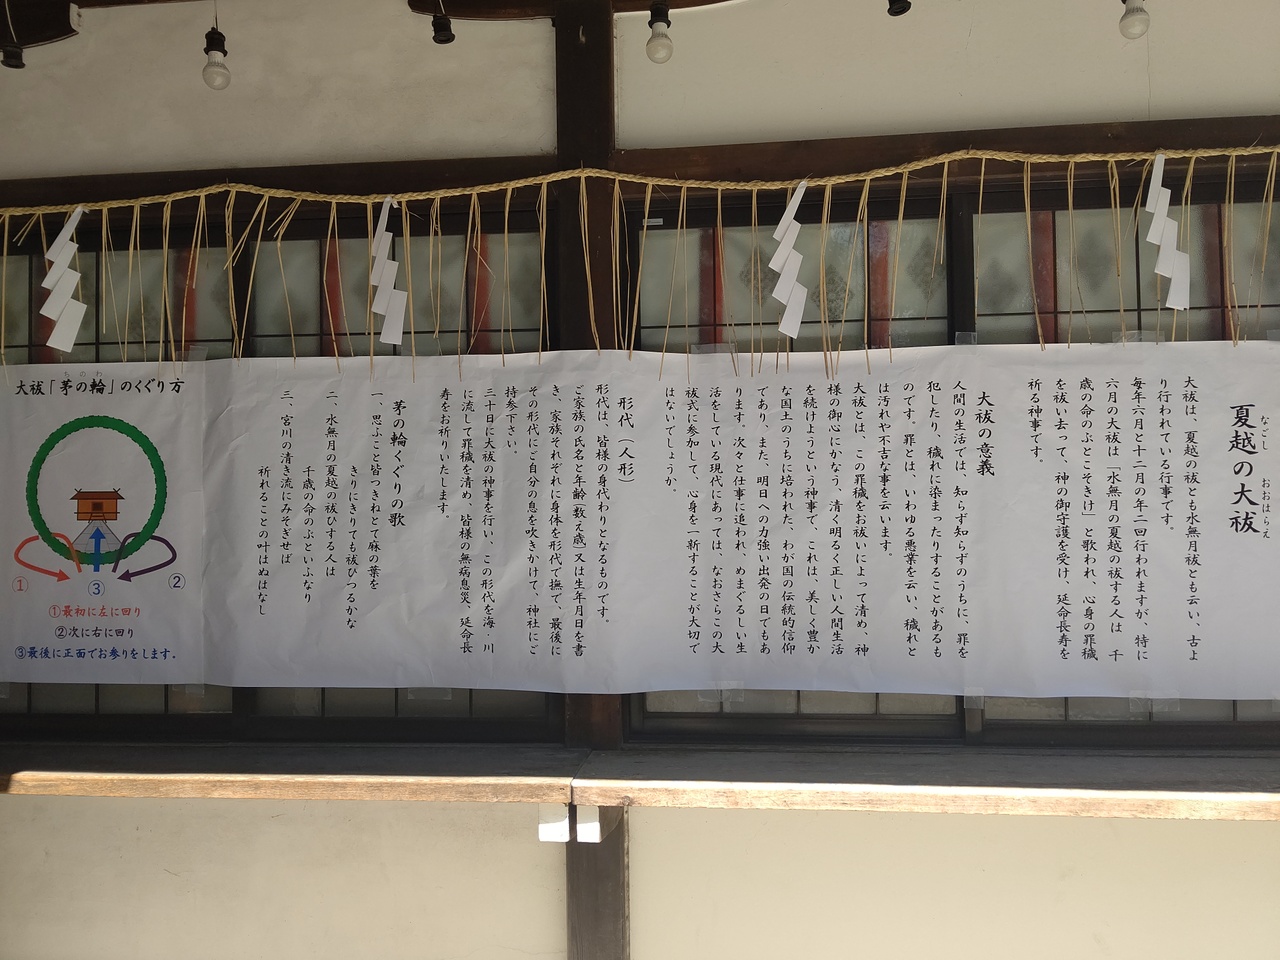 夏越の大祓
なごし　おおはらえ
大祓は、夏越の祓とも水無月祓とも云い、古よ
り行われている行事です。
毎年六月と十二月の年二回行われますが、特に
六月の大祓は「水無月の夏越の祓する人は　千
歳の命のぶとこそきけ」と歌われ、心身の罪穢
を祓い去って、神の御守護を受け、延命長寿を
祈る神事です。
大祓の意義
人間の生活では、知らず知らずのうちに、罪を
犯したり、穢れに染まったりすることがあるも
のです。罪とは、いわゆる悪業を云い、穢れと
は汚れや不吉な事を云います。
大祓とは、この罪穢をお祓いによって清め、神
様の御心にかなう、清く明るく正しい人間生活
を続けようという神事で、これは、美しく豊か
な国土のうちに培われた、わが国の伝統的信仰
であり、また、明日への力強い出発の日でもあ
ります。次々と仕事に追われ、めまぐるしい生
活をしている現代にあっては、なおさらこの大
祓式に参加して、心身を一新することが大切で
はないでしょうか。
形代（人形）
形代は、皆様の身代わりとなるものです。
ご家族の氏名と年齢（数え歳）又は生年月日を書
き、家族それぞれに身体を形代で撫で、最後に
その形代にご自分の息を吹きかけて、神社にご
持参下さい。
三十日に大祓の神事を行い、この形代を海・川
に流して罪穢を清め、皆様の無病息災、延命長
寿をお祈りいたします。
茅の輪くぐりの歌
一、思ふこと皆つきねとて麻の葉を
きりにきりても祓ひつるかな
二、水無月の夏越の祓ひする人は
千歳の命のぶといふなり
三、宮川の清き流にみそぎせば
祈れることの叶はぬはなし
ちのわ
大祓「茅の輪」のくぐり方
①
③
②
①最初に左に回り
②次に右に回り
③最後に正面でお参りをします．